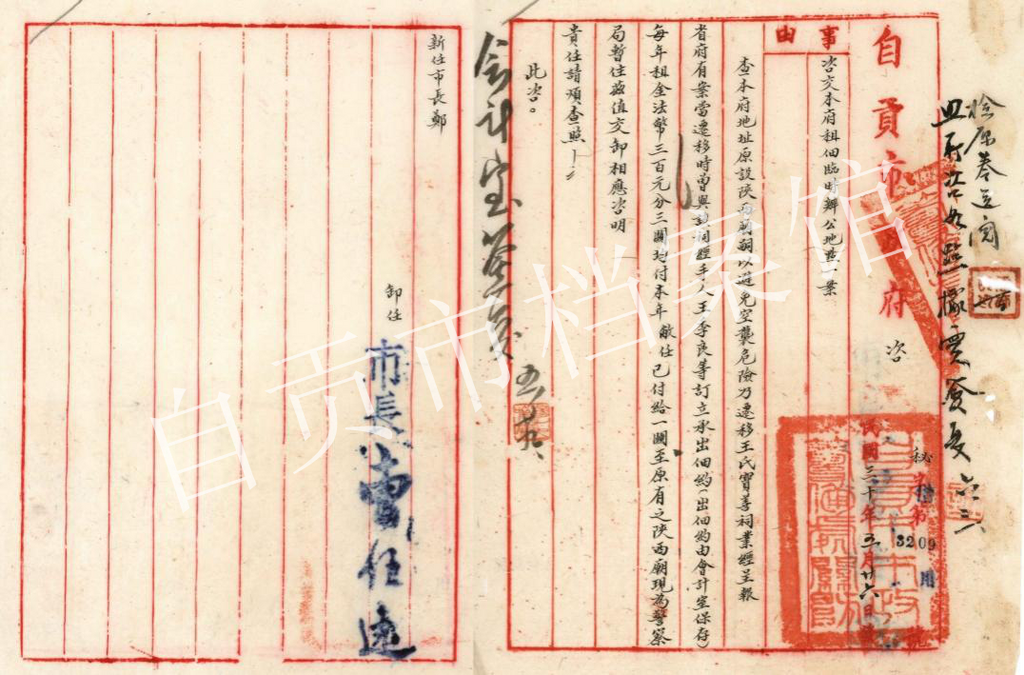 自貢市政府
咨
事由
咨交本府租佃臨時辦公地點一業
查本府地址原設陝西廟嗣以避免空襲危險乃遷移王氏寶善祠業經呈報
省府有案當遷移時曾與該祠經手人王季良等訂立承出佃約(出佃約由會計室保存)
每年租金法幣三百元分三關均付本年敝任已付給一關至原有之陝西廟現為警察
局暫住茲值交卸相應咨明
貴任請煩查照
此咨。
新任市長鄭
卸任
市長
任遠
民國三十年五月廿六日
3209
自贡市档案馆